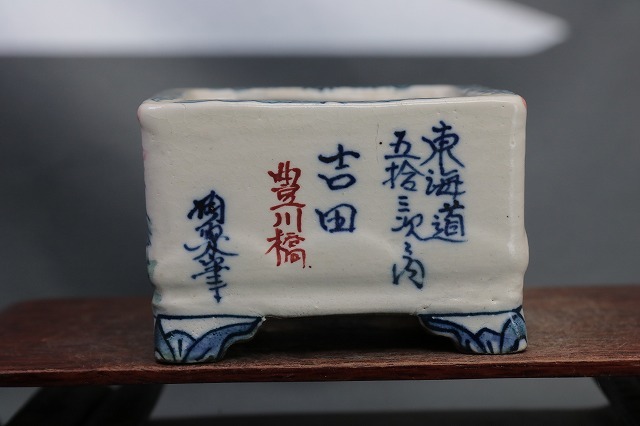 東海道
五拾三次之内
吉田
豊川橋